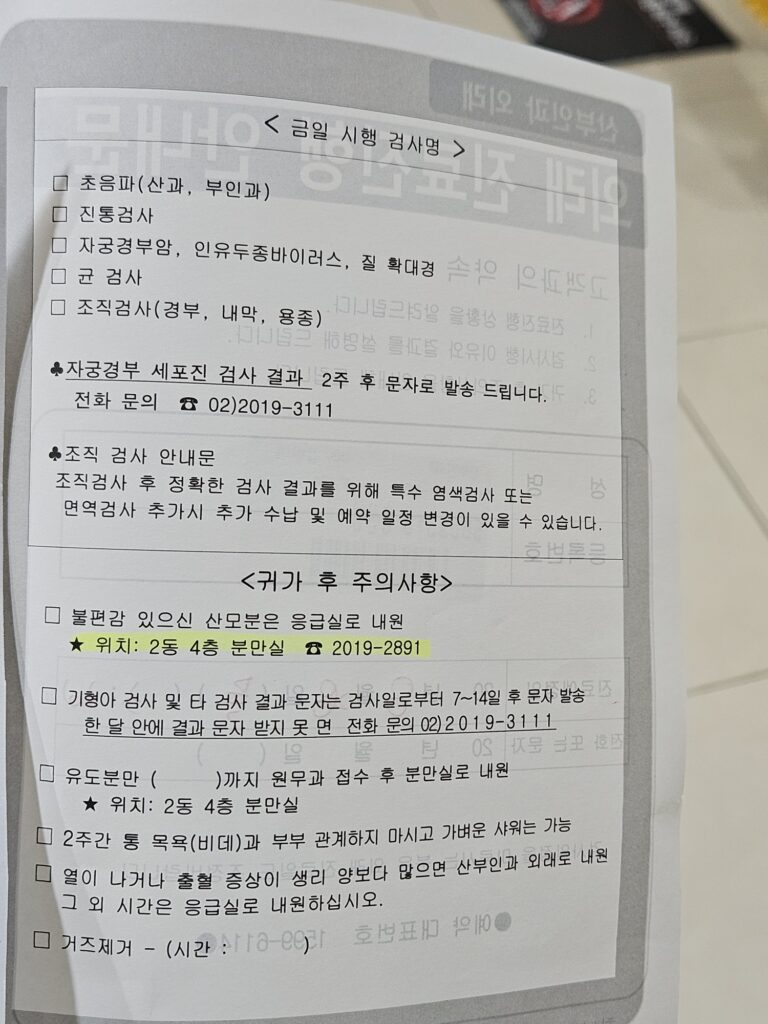 < 금일 시행 검사명 >
□ 초음파(산과, 부인과)
□ 진통검사
□ 자궁경부암, 인유두종바이러스, 질 확대경
□ 균 검사
□ 조직검사(경부, 내막, 용종)
♣자궁경부 세포진 검사 결과 2주 후 문자로 발송 드립니다.
전화 문의 ☎ 02)2019-3111
♣조직 검사 안내문
조직검사 후 정확한 검사 결과를 위해 특수 염색검사 또는
면역검사 추가시 추가 수납 및 예약 일정 변경이 있을 수 있습니다.
<귀가 후 주의사항>
□ 불편감 있으신 산모분은 응급실로 내원
★ 위치: 2동 4층 분만실 ☎ 2019-2891
□ 기형아 검사 및 타 검사 결과 문자는 검사일로부터 7~14일 후 문자 발송
한 달 안에 결과 문자 받지 못 면 전화 문의 02)2019-3111
□ 유도분만 ( )까지 원무과 접수 후 분만실로 내원
★ 위치: 2동 4층 분만실
□ 2주간 통 목욕(비데)과 부부 관계하지 마시고 가벼운 샤워는 가능
□ 열이 나거나 출혈 증상이 생리 양보다 많으면 산부인과 외래로 내원
그 외 시간은 응급실로 내원하십시오.
□ 거즈제거 - (시간 : )
산부인과 외래
외래 진료진행 안내문
고객과의 약속
1. 진료진행 상황을 알려드립니다.
2. 검사시행 이유와 결과를 설명해 드립니다.
성 명
등록번호
●예약 대표번호 1599-6114